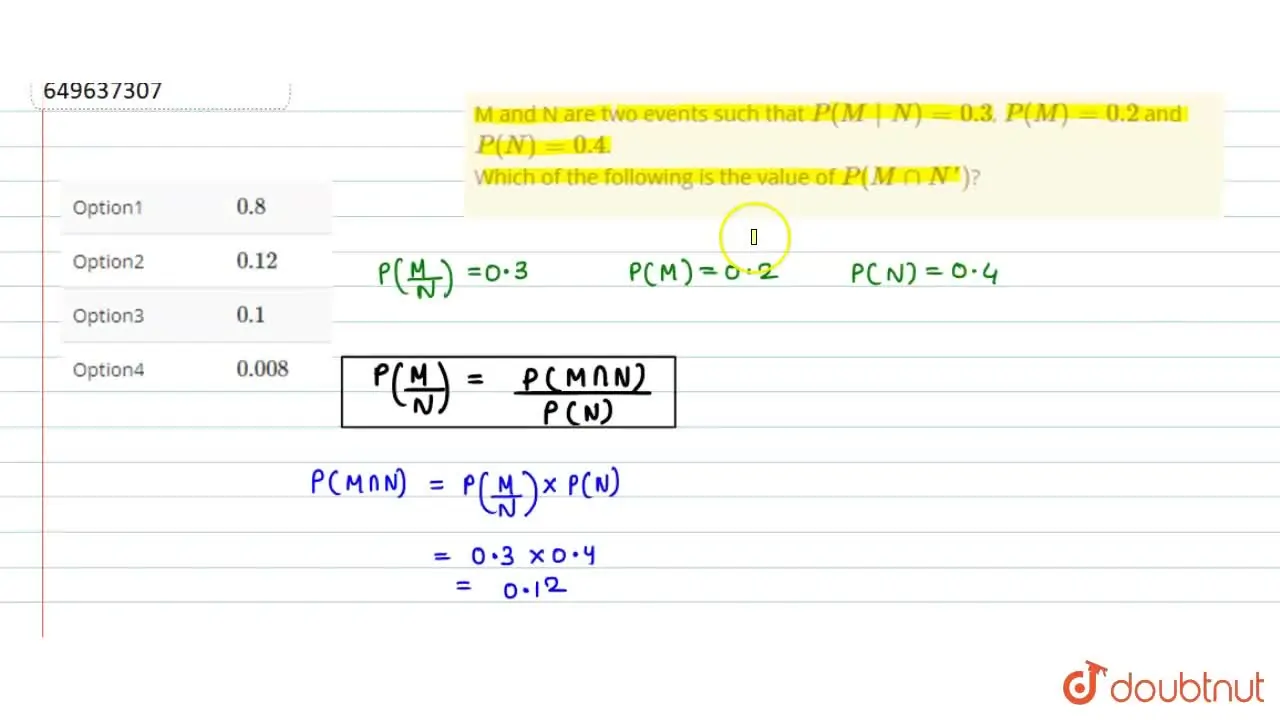 649637307
M and N are two events such that P(M | N) = 0.3, P(M) = 0.2 and
P(N) = 0.4.
Which of the following is the value of P(M ∩ N′)?
Option1 0.8
Option2 0.12
Option3 0.1
Option4 0.008
P(M/N) = 0.3 P(M) = 0.2 P(N) = 0.4
P(M/N) = P(M∩N)/P(N)
P(M∩N) = P(M/N) × P(N)
= 0.3 × 0.4
= 0.12
doubtnut